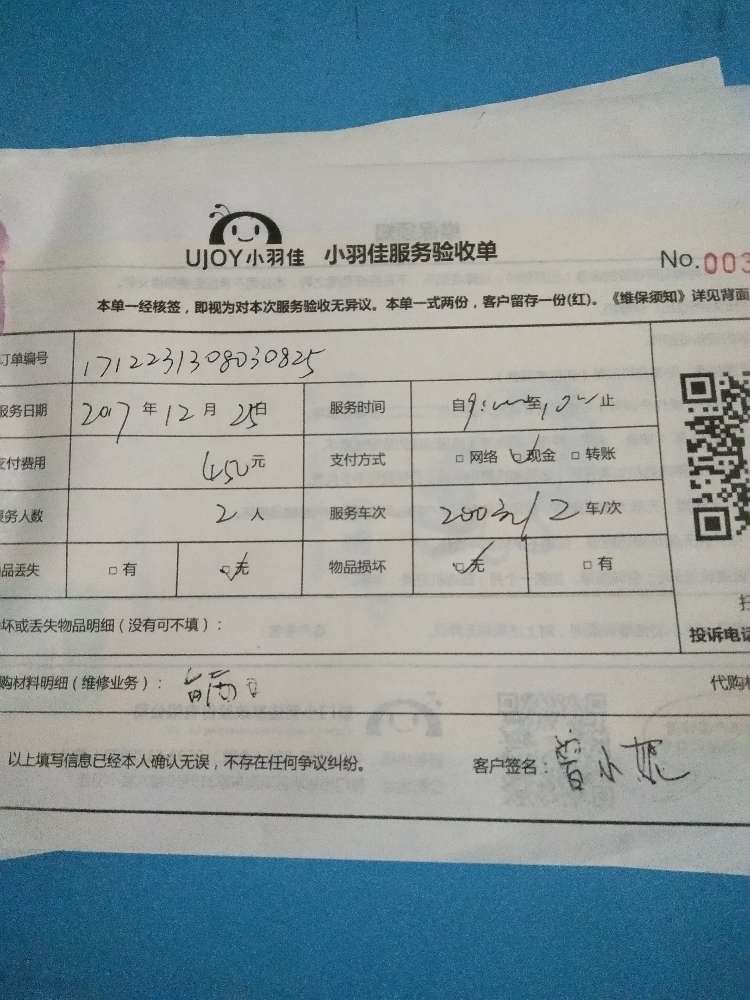 UJOY小羽佳 小羽佳服务验收单
No.003
本单一经核签，即视为对本次服务验收无异议。本单一式两份，客户留存一份(红)。《维保须知》详见背面
订单编号 1712231308030825
服务日期 2017 年 12 月 25日 服务时间 自9: 至 止
支付费用 450元 支付方式 □ 网络 ☑ 现金 □ 转账
服务人数 2 人 服务车次 200元/2 车/次
品丢失 □ 有 ☑ 无 物品损坏 ☑ 无 □ 有
坏或丢失物品明细（没有可不填）：
投诉电话
购材料明细（维修业务）： 代购材
以上填写信息已经本人确认无误，不存在任何争议纠纷。 客户签名：曾小妮